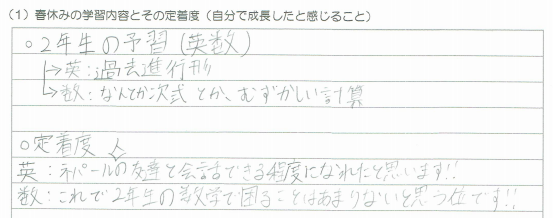 (1) 春休みの学習内容とその定着度（自分で成長したと感じること）
○2年生の予習(英数)
↳英:過去進行形
↳数:なんとか次式とか、むずかしい計算
○定着度
英:ネパールの友達と会話できる程度になれたと思います!!
数:これで2年生の数学で困ることはあまりないと思う位です!!